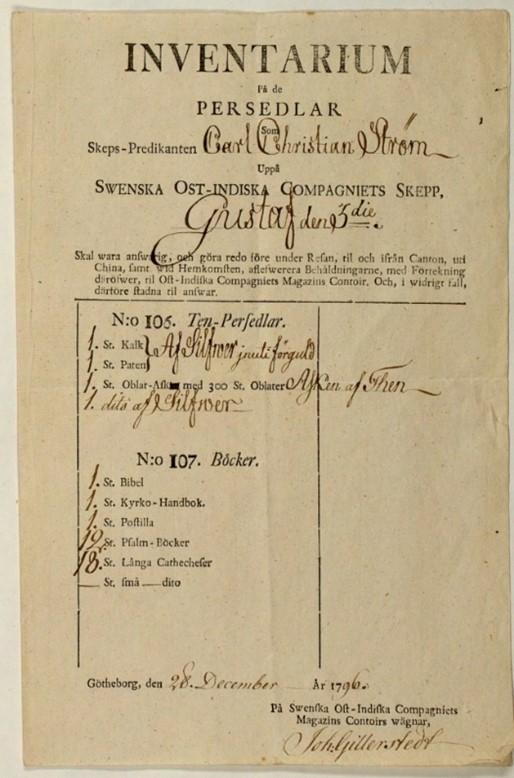 INVENTARIUM
På de
PERSEDLAR
Som
Skeps-Predikanten Carl Christian Strøm
Uppå
SWENSKA OST-INDISKA COMPAGNIETS SKEPP,
Gustaf den 3die.
Skal wara answarig, och göra redo före under Resan, til och ifrån Canton, uti
China, samt wid Hemkomsten, aflefwerera Behåldningarne, med Förtekning
däröfwer, til Ost-Indiska Compagniets Magazins Contoir. Och, i widrigt fall,
därföre stadna til answar.
N:o 106. Ten-Persedlar.
1. St. Kalk } Af Silfwer inuti förguld
1. St. Paten
1. St. Oblat-Ask med 300 St. Oblater Asken af Then
1. dito af Silfwer
N:o 107. Böcker.
1. St. Bibel
1. St. Kyrko-Handbok.
1. St. Postilla
19. St. Psalm-Böcker
18. St. Långa Cathecheser
— St. små — dito
Götheborg, den 28. December År 1796.
På Swenska Ost-Indiska Compagniets
Magazins Contoirs wägnar,
Joh. Gillerstedt